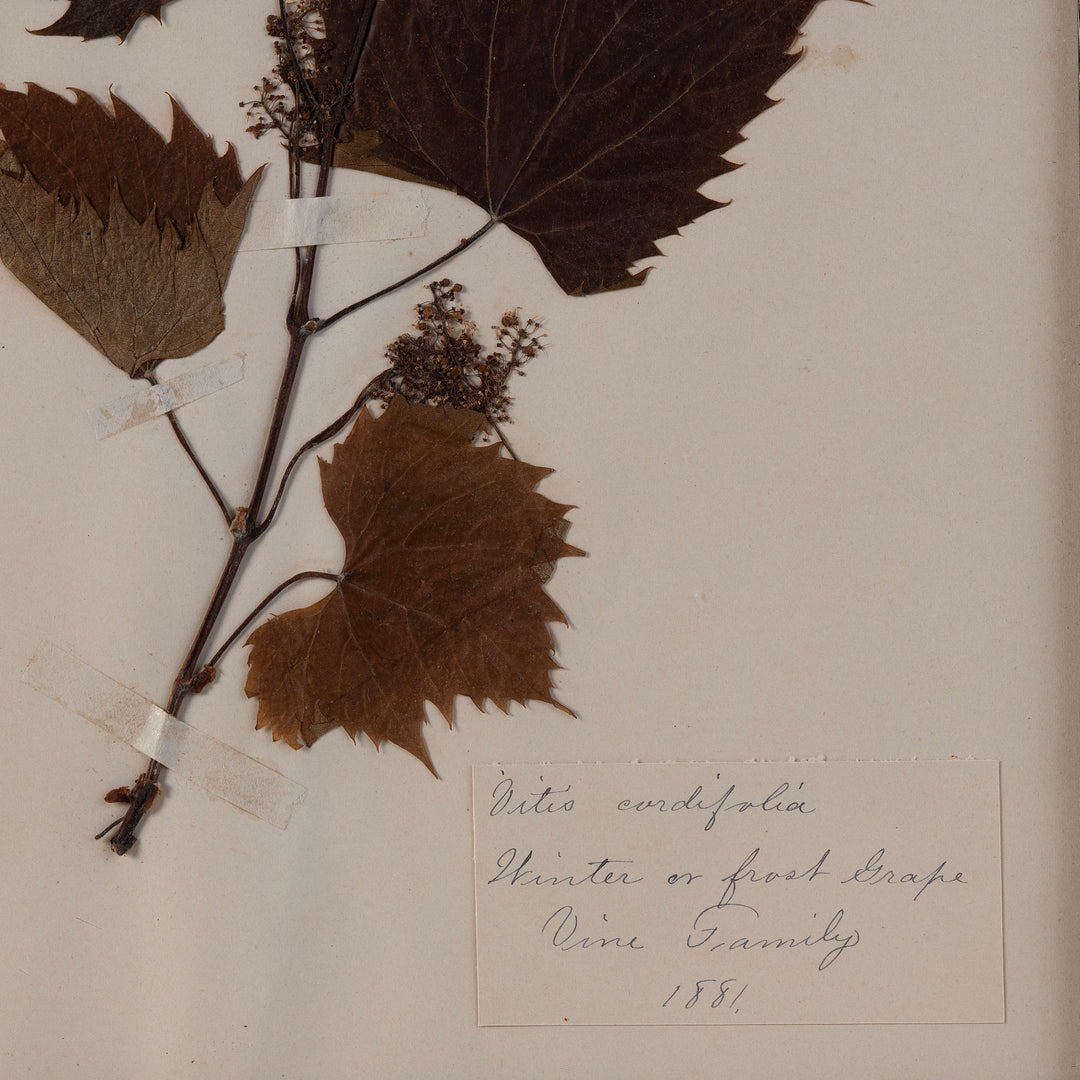 Vitis cordifolia
Winter or frost Grape
Vine Family
1881.